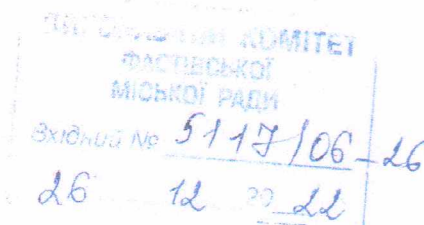 ВИКОНАВЧИЙ КОМІТЕТ
ФАСТІВСЬКОЇ
МІСЬКОЇ РАДИ
Вхідний № 5117/06-26
26 12 2022